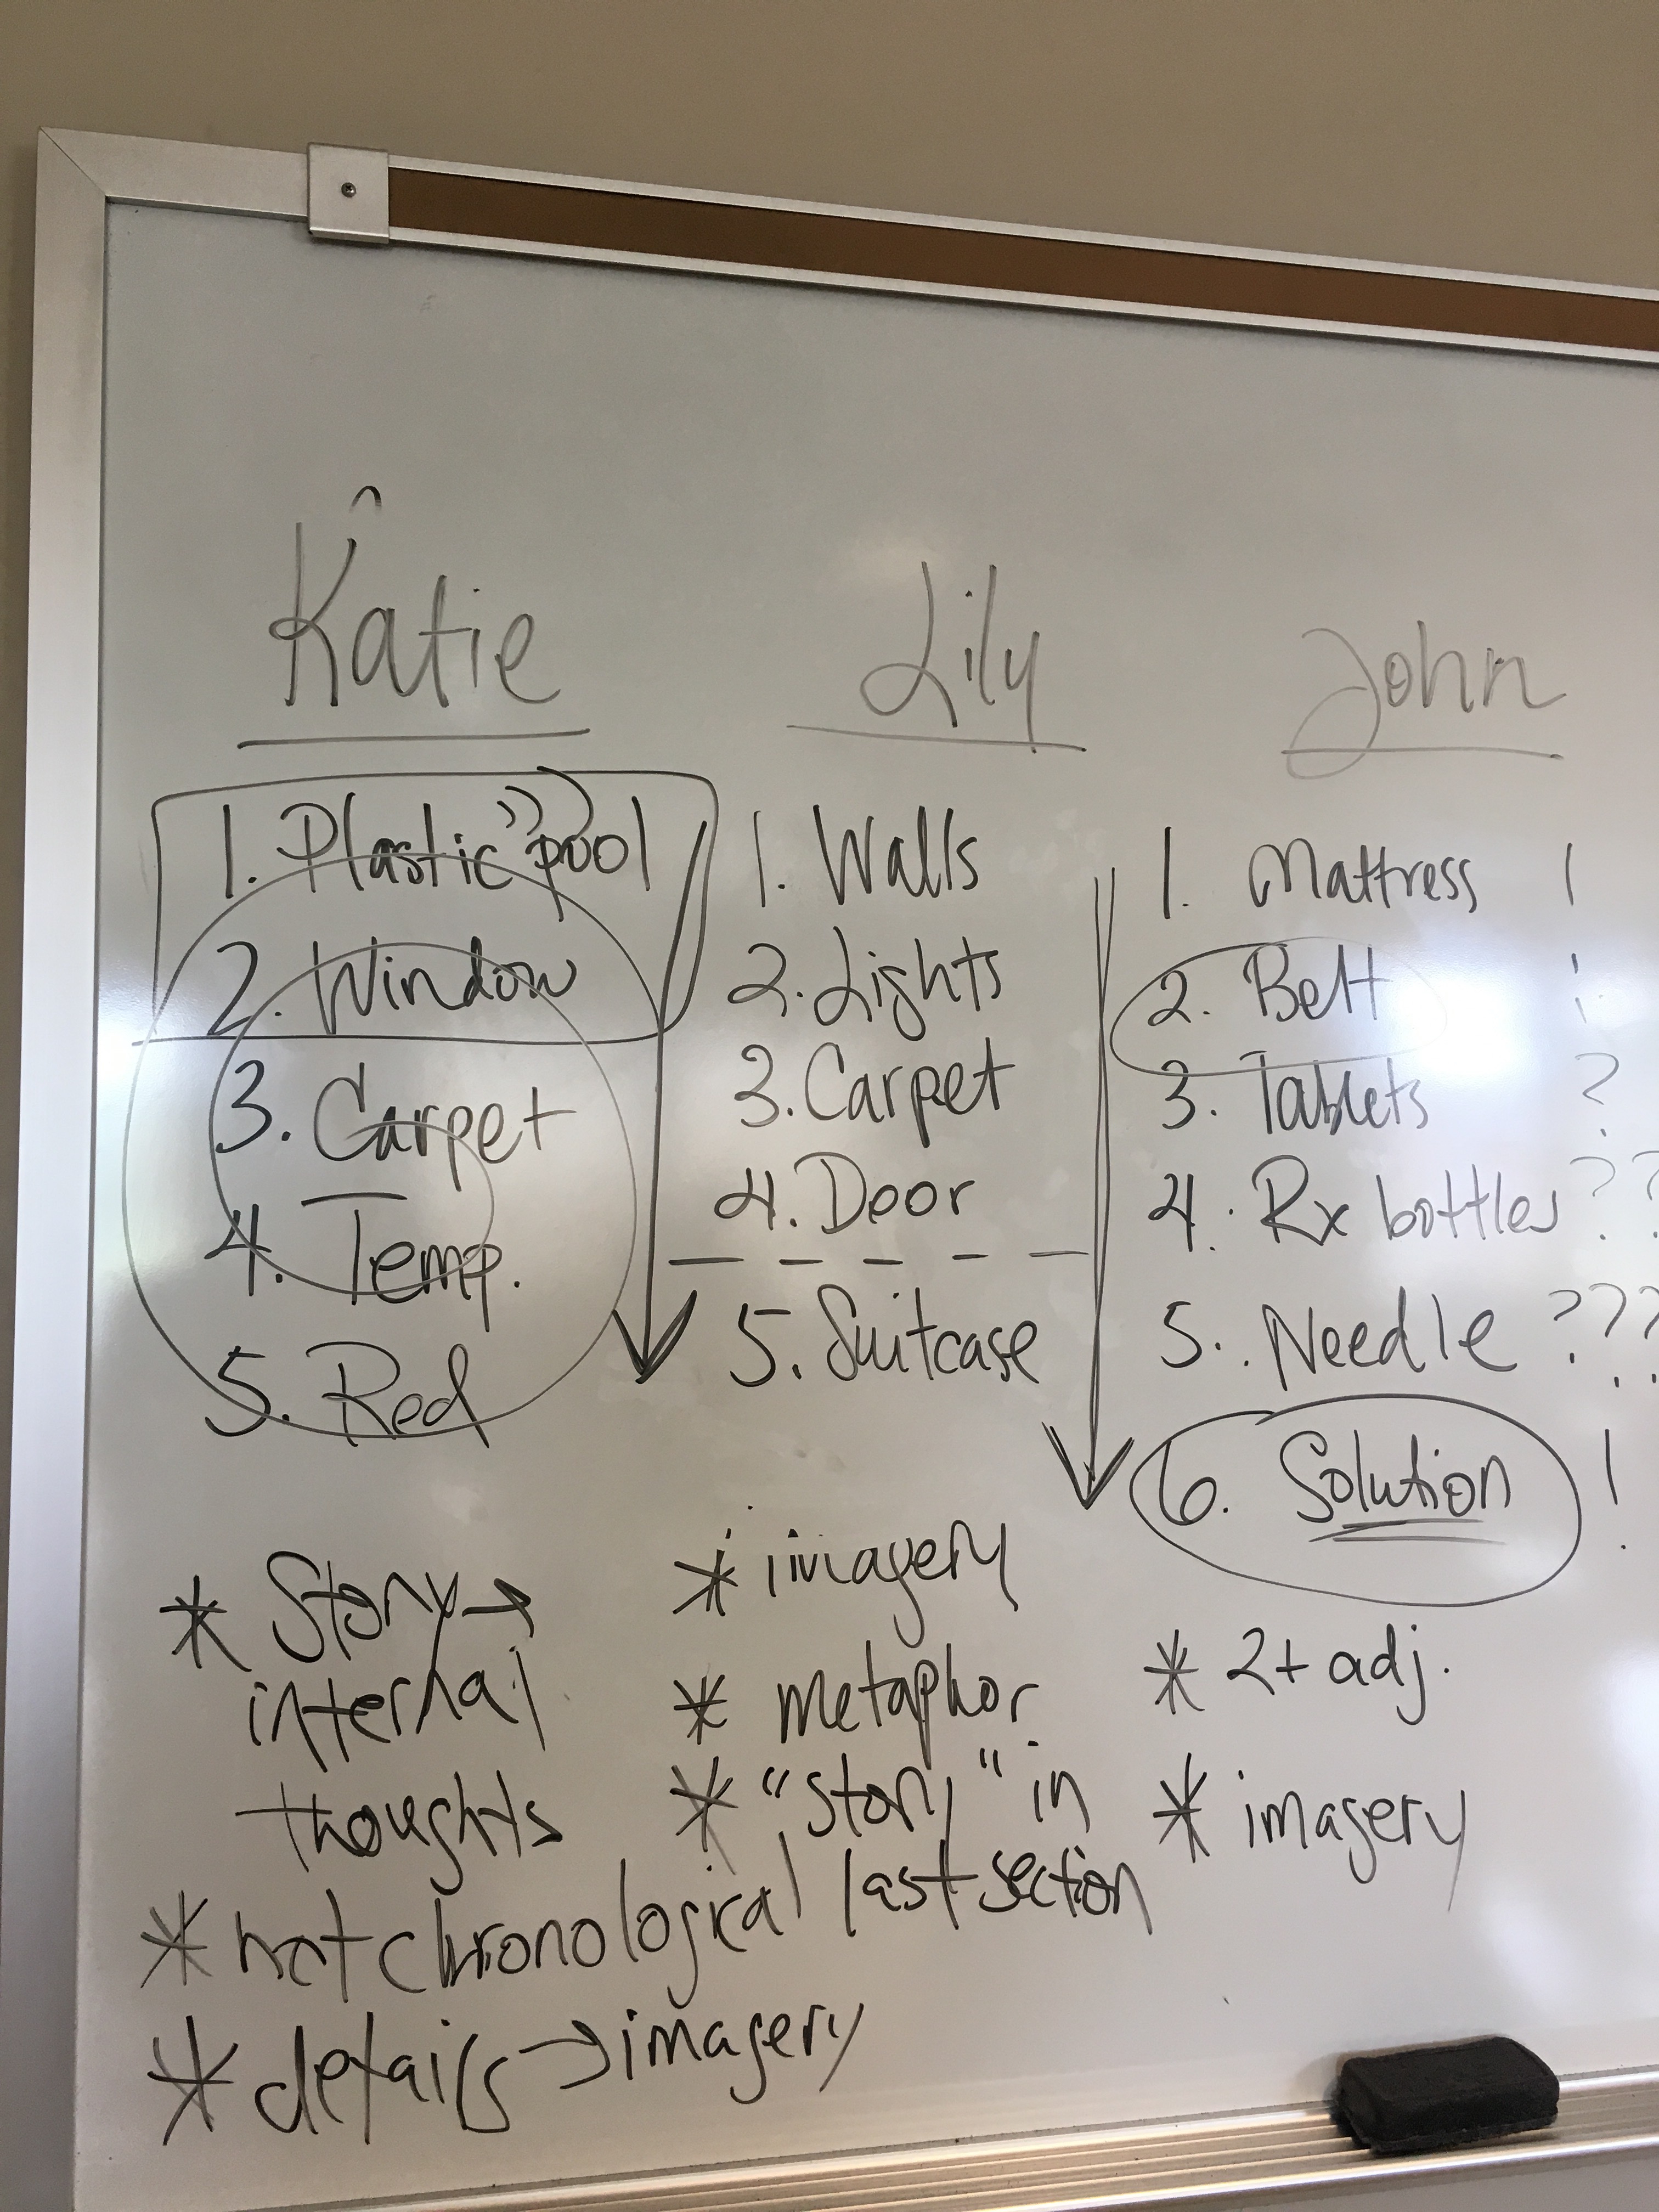 Katie
1. Plastic pool
2. Window
3. Carpet
4. Temp.
5. Red
* Story →
internal
thoughts
* not chronological
* details → imagery
Lily
1. Walls
2. Lights
3. Carpet
4. Door
5. Suitcase
* imagery
* metaphor
* "story" in
last section
John
1. Mattress !
2. Belt !
3. Tablets ?
4. Rx bottles ??
5. Needle ???
6. Solution !
* 2+ adj.
* imagery